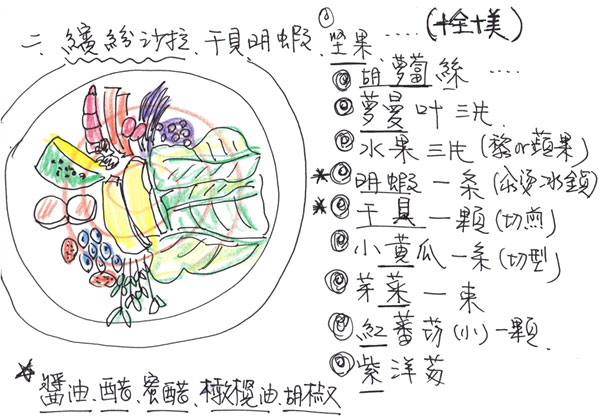 二、繽紛沙拉、干貝明蝦、堅果.....(十全十美)
胡蘿蔔絲....
蘿曼叶三片
水果三片(梨or蘋果)
明蝦一条(汆燙冰鎮)
干貝一顆(切煎)
小黄瓜一条(切型)
芽菜一束
紅蕃茄(小)一顆
紫洋葱
醬油、醋、蜜醋、橄欖油、胡椒